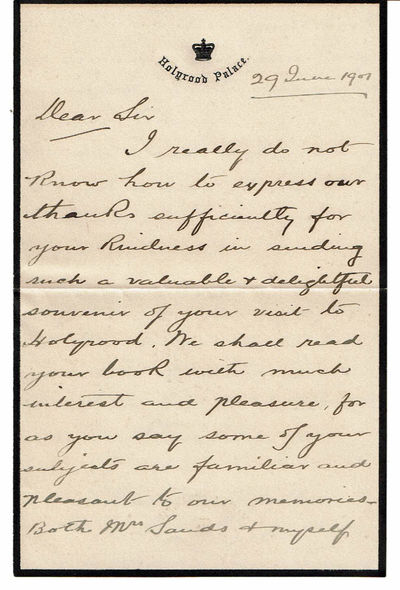 Holyrood Palace.
29 June 1901
Dear Sir
I really do not
know how to express our
thanks sufficiently for
your kindness in sending
such a valuable & delightful
souvenir of your visit to
Holyrood. We shall read
your book with much
interest and pleasure, for
as you say some of your
subjects are familiar and
pleasant to our memories.
Both Mrs Sands & myself